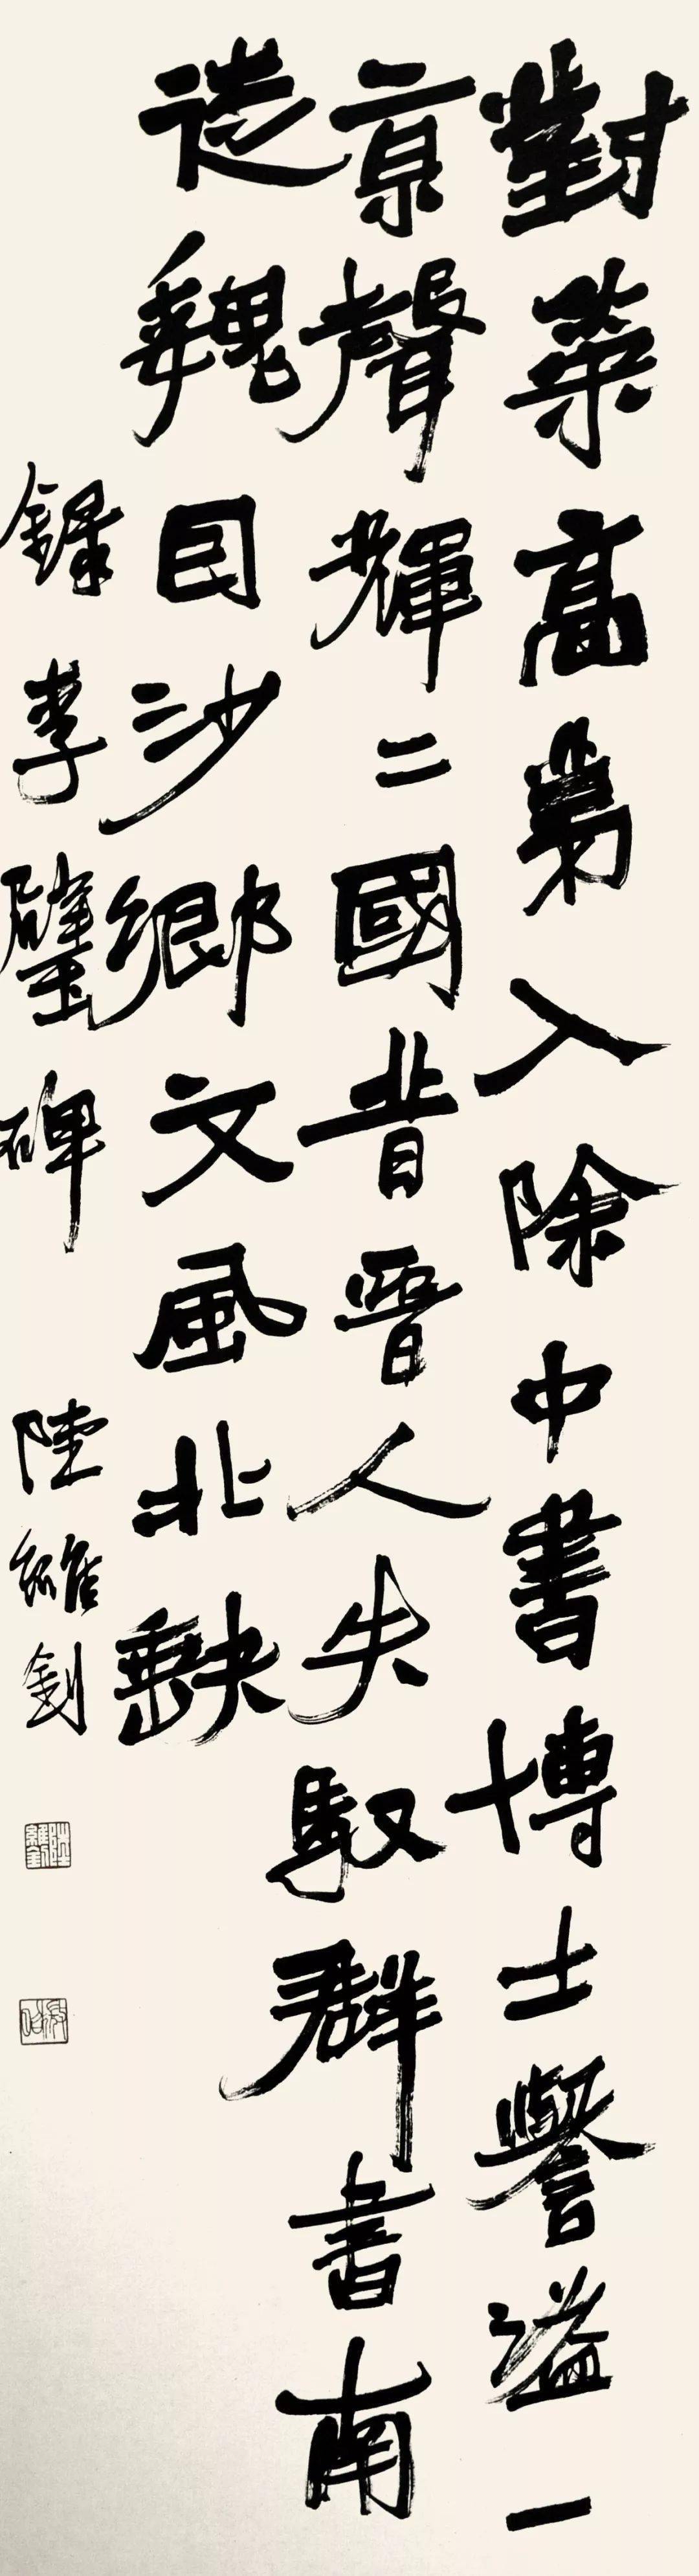 對策高第入除中書博士譽溢一
京聲輝二國昔晉人失馭群書南
徙魏因沙鄉文風北缺
錄李璧碑 陸維釗
陸維釗